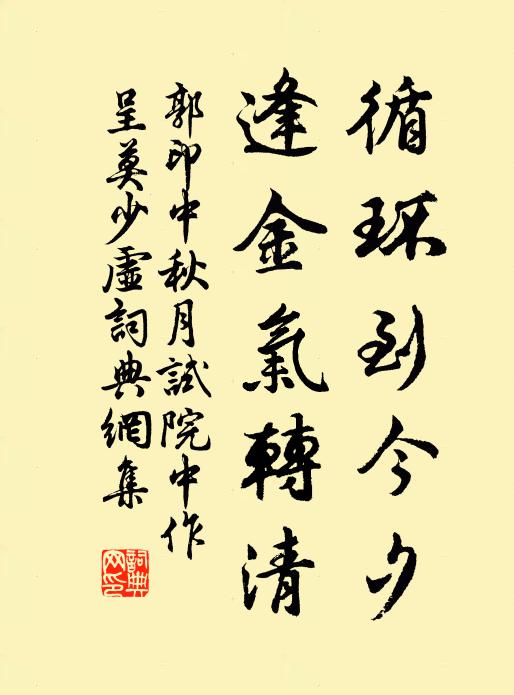 循环到今夕
逢金氣轉清
郭印中秋月試院中作
呈莫少虛詞典網集
詞典
网印